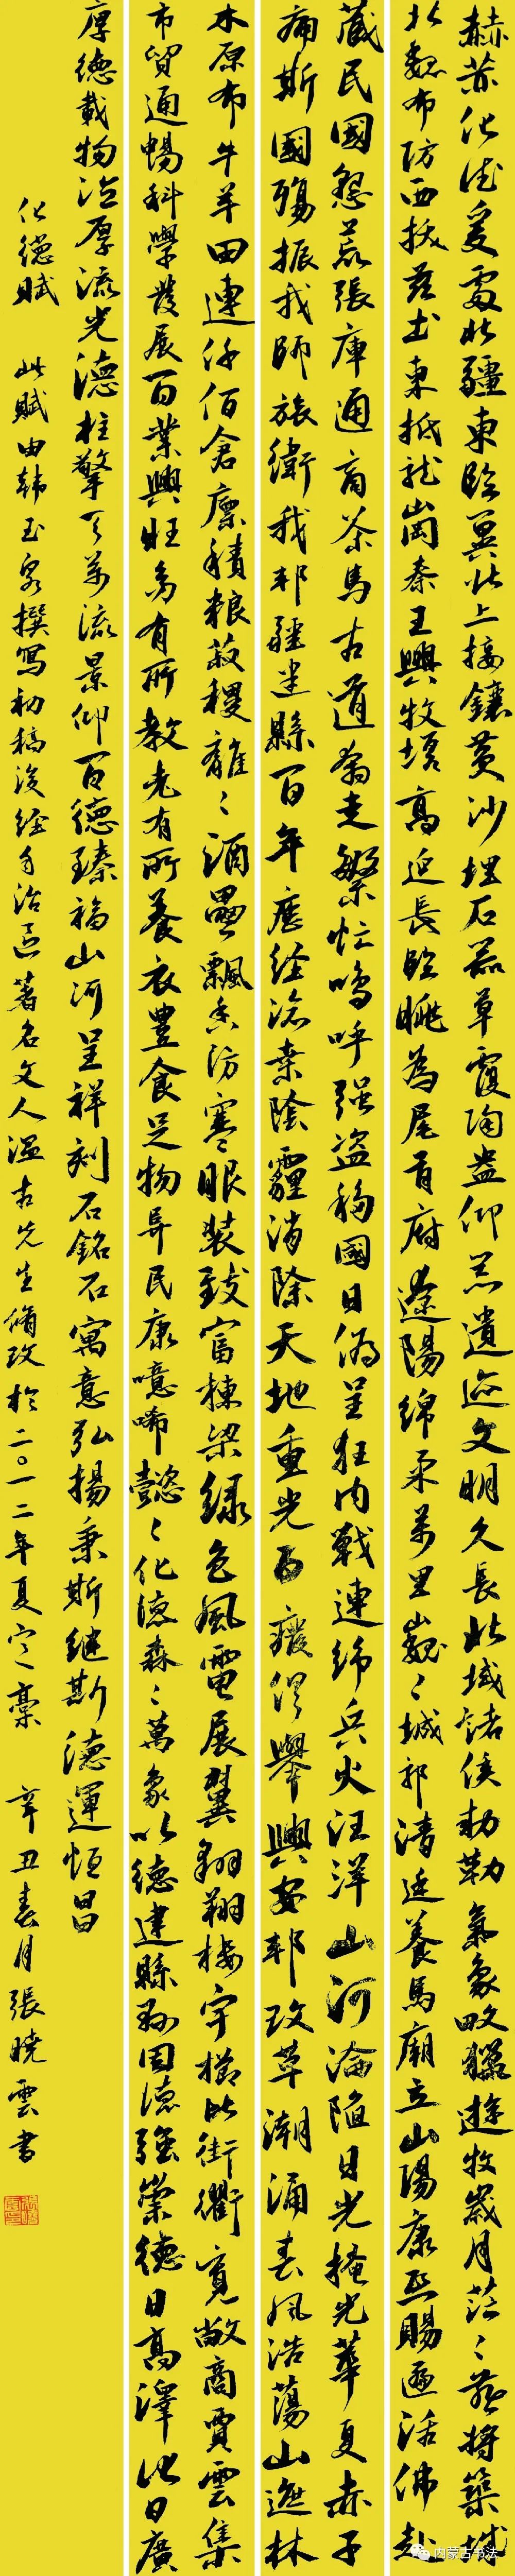 赫赫化德爰處北疆東臨冀北上接鑲黃沙埋石器草覆陶盎仰羔遺迹文明久長北域諸侯勅勒氣象畋獵遊牧歲月茫〻燕將築城
北魏布防西撫蒼土東抵龍崗秦王興牧塔高延長臨眺為尾首府遼陽綿柔萬里巍〻城郭清廷養馬廟立山陽康熙賜匾活佛赴
藏民國墾荒張庫通商茶馬古道奔走繁忙嗚呼强盜禍國日偽呈狂內戰連綿兵火汪洋山河淪陷日光掩光華夏赤子
痛斯國殤振我師旅衛我邦疆建縣百年應經滄桑陰霾消除天地重光百癈俱舉興安邦改革潮涌春風浩蕩山造林
木原布牛羊田連仟佰倉廩積糧菽稷離〻酒罍飄香防寒眼裝致富棟梁绿色風電展翼翱翔樓宇櫛比街衢寬敞商賈雲集
市貿通暢科學發展百業興旺幼有所教老有所養衣豐食足物阜民康噫唏懿〻化德森〻萬象以德建縣縣因德强崇德日高澤化日廣
厚德載物流厚流光德柱擎天萬流景仰百德臻福山河呈祥刻石銘石寓意弘揚秉斯继斯德運恒昌
化德賦 此賦由韩玉泉撰寫初稿後經自治區著名文人温古先生脩改於二〇一二年夏定稾 辛丑春月張曉雲書
内蒙古书法